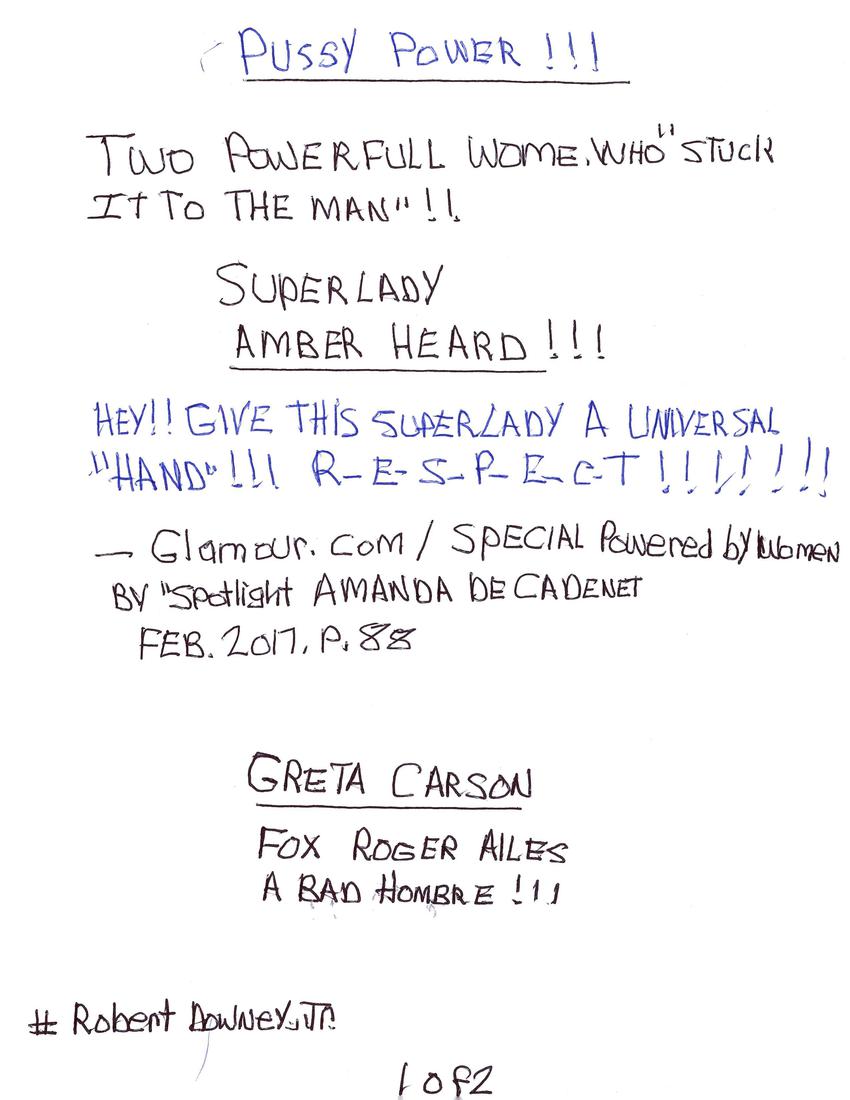 PUSSY POWER !!!
TWO POWERFULL WOME.WHO "STUCK
IT TO THE MAN" !!
SUPERLADY
AMBER HEARD !!!
HEY!! GIVE THIS SUPERLADY A UNIVERSAL
"HAND" !!! R-E-S-P-E-C-T !!!!!!!
— Glamour.com / SPECIAL Powered by Women
BY "Spotlight AMANDA DE CADENET
FEB. 2017, P. 88
GRETA CARSON
FOX ROGER AILES
A BAD HOMBRE !!!
# Robert Downey.Jr.
1 of 2